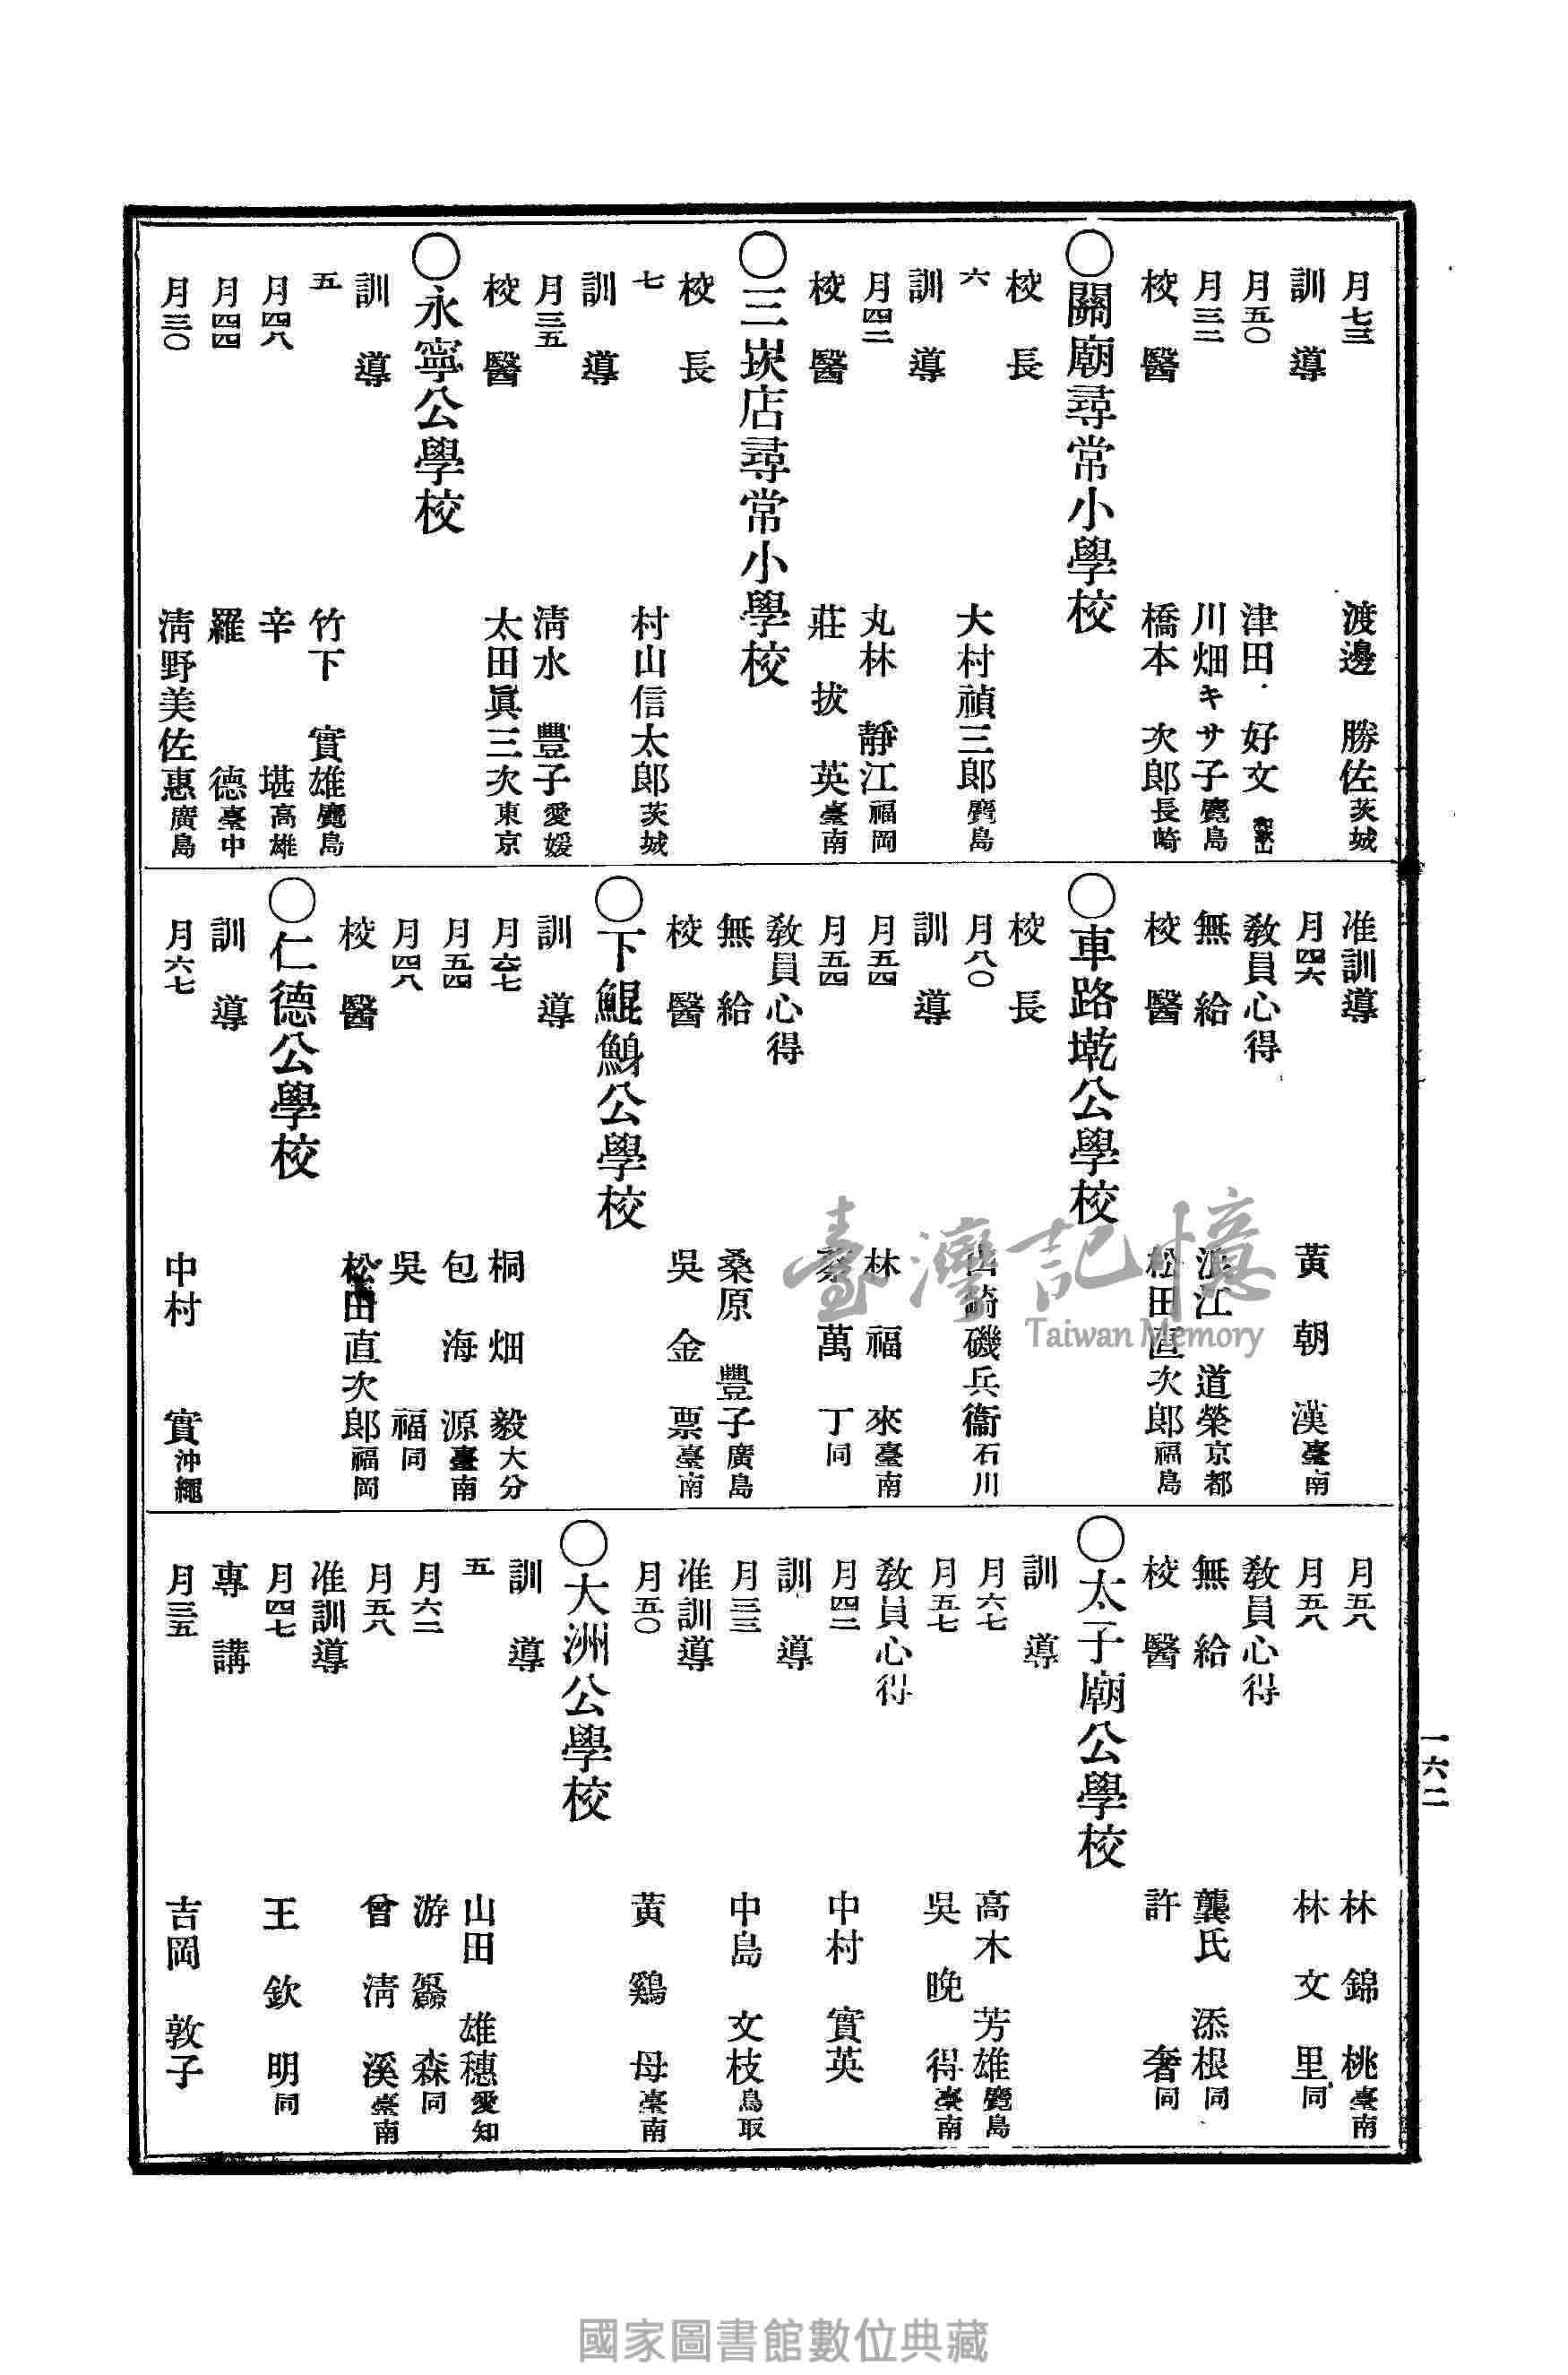 月七三　渡邊　勝佐 茨城
訓導
月五〇　津田　好文 和歌山
月三三　川畑キサ子 鹿兒島
校醫　橋本　次郎 長崎
○關廟尋常小學校
校長
六　大村禎三郎 鹿兒島
訓導
月四二　丸林　靜江 福岡
校醫　莊拔英 臺南
○三崁店尋常小學校
校長
七　村山信太郎 茨城
訓導
月三五　淸水　豐子 愛媛
校醫　太田眞三次 東京
○永寧公學校
訓導
五　竹下　實雄 鹿兒島
月四八　辛　堪 高雄
月四四　羅　德 臺中
月三〇　淸野美佐惠 廣島
准訓導
月四六　黃朝漢 臺南
敎員心得
無給　浪江　道榮 京都
校醫　松田直次郎 福島
○車路墘公學校
校長
月八〇　山崎磯兵衞 石川
訓導
月五四　林福來 臺南
月五四　蔡萬丁 同
敎員心得
無給　桑原　豐子 廣島
校醫　吳金票 臺南
○下鯤鯓公學校
訓導
月六七　桐畑毅 大分
月五四　包海源 臺南
月四八　吳　福 同
校醫　松田直次郎 福岡
○仁德公學校
訓導
月六七　中村　實 沖繩
月五八　林錦桃 臺南
月五八　林文里 同
敎員心得
無給　龔氏　添根 同
校醫　許　奢 同
○太子廟公學校
訓導
月六七　高木　芳雄 鹿兒島
月五七　吳晚得 臺南
敎員心得
月四二　中村　實英
訓導
月三三　中島　文枝 鳥取
准訓導
月五〇　黃鷄母 臺南
○大洲公學校
訓導
五　山田　雄穗 愛知
月六二　游　森 同
月五八　曾淸溪 臺南
准訓導
月四七　王欽明 同
專講
月三五　吉岡　敦子
一六二
臺灣記憶
Taiwan Memory
國家圖書館數位典藏